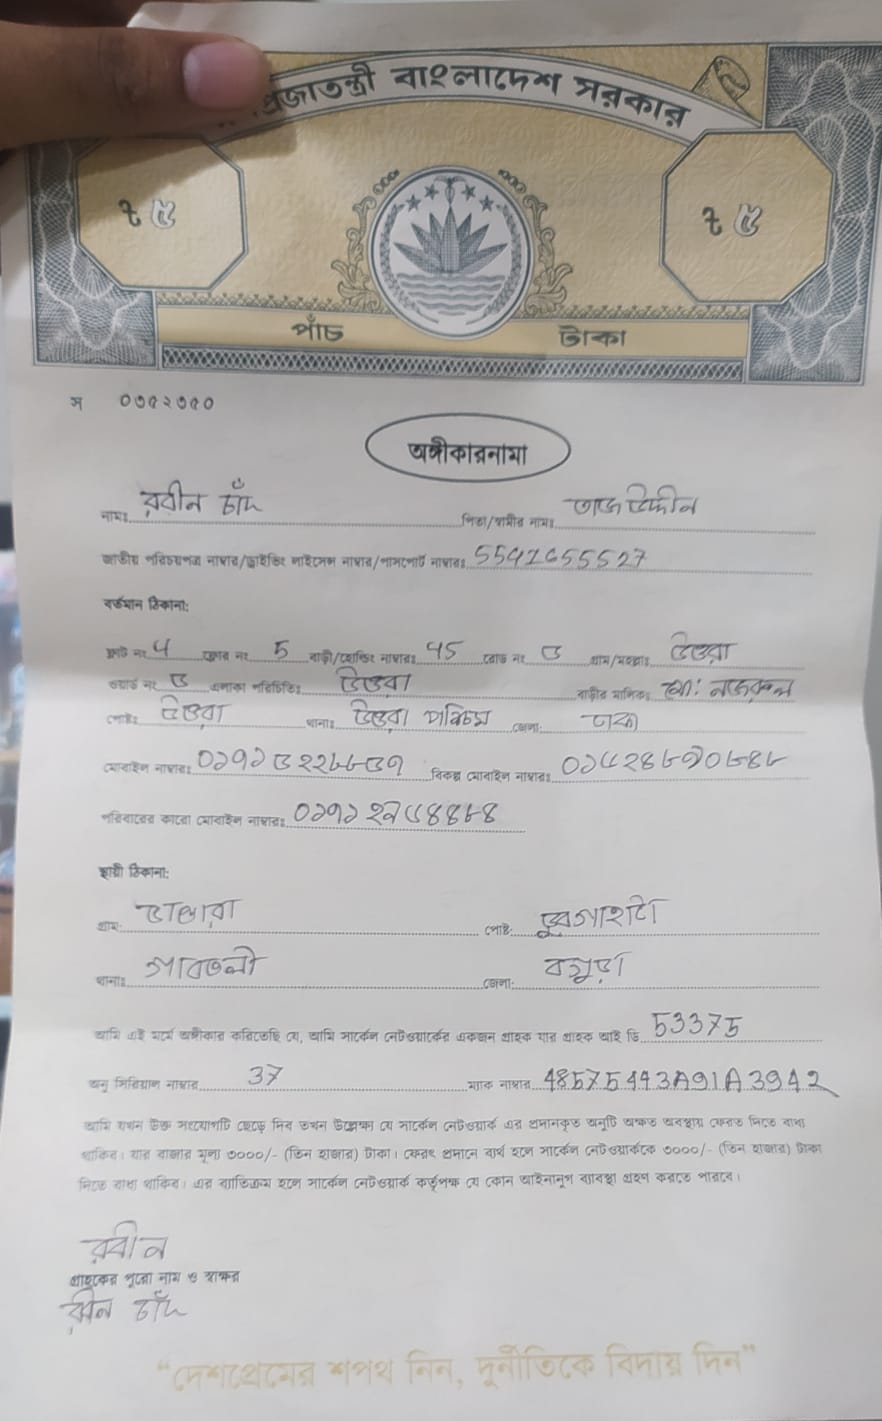 প্রজাতন্ত্রী বাংলাদেশ সরকার
৳ ৫ ৳ ৫
পাঁচ টাকা
স ০৩৫২৩৫০
অঙ্গীকারনামা
নামঃ রবীন চাঁদ পিতা/স্বামীর নামঃ তাজউদ্দীন
জাতীয় পরিচয়পত্র নাম্বার/ড্রাইভিং লাইসেন্স নাম্বার/পাসপোর্ট নাম্বারঃ
বর্তমান ঠিকানা:
ফ্লাট নং 4 ফ্লোর নং 5 বাড়ী/হোল্ডিং নাম্বারঃ 45 রোড নং ৩ গ্রাম/মহল্লাঃ উত্তরা
ওয়ার্ড নং ৩ এলাকা পরিচিতিঃ উত্তরা বাড়ীর মালিকঃ মো: নজরুল
পোষ্টঃ উত্তরা থানাঃ উত্তরা পশ্চিম জেলা: ঢাকা
মোবাইল নাম্বারঃ ০১৭১৩২২৮৮৩৭ বিকল্প মোবাইল নাম্বারঃ
পরিবারের কারো মোবাইল নাম্বারঃ
স্থায়ী ঠিকানা:
গ্রাম: পোষ্ট:
থানাঃ গাবতলী জেলা: বগুড়া
আমি এই মর্মে অঙ্গীকার করিতেছি যে, আমি সার্কেল নেটওয়ার্কের একজন গ্রাহক যার গ্রাহক আই ডি 53375
অনু সিরিয়াল নাম্বার 37 ম্যাক নাম্বার 48575443A91A3942
আমি যখন উক্ত সংযোগটি ছেড়ে দিব তখন উল্লেক্ষ্য যে সার্কেল নেটওয়ার্ক এর প্রদানকৃত অনুটি অক্ষত অবস্থায় ফেরত দিতে বাধ্য
থাকিব। যার বাজার মূল্য ৩০০০/- (তিন হাজার) টাকা। ফেরৎ প্রদানে ব্যর্থ হলে সার্কেল নেটওয়ার্ককে ৩০০০/- (তিন হাজার) টাকা
দিতে বাধ্য থাকিব। এর ব্যাতিক্রম হলে সার্কেল নেটওয়ার্ক কর্তৃপক্ষ যে কোন আইনানুগ ব্যাবস্থা গ্রহণ করতে পারবে।
রবীন
গ্রাহকের পুরো নাম ও স্বাক্ষর
রবীন চাঁদ
“দেশপ্রেমের শপথ নিন, দুর্নীতিকে বিদায় দিন”